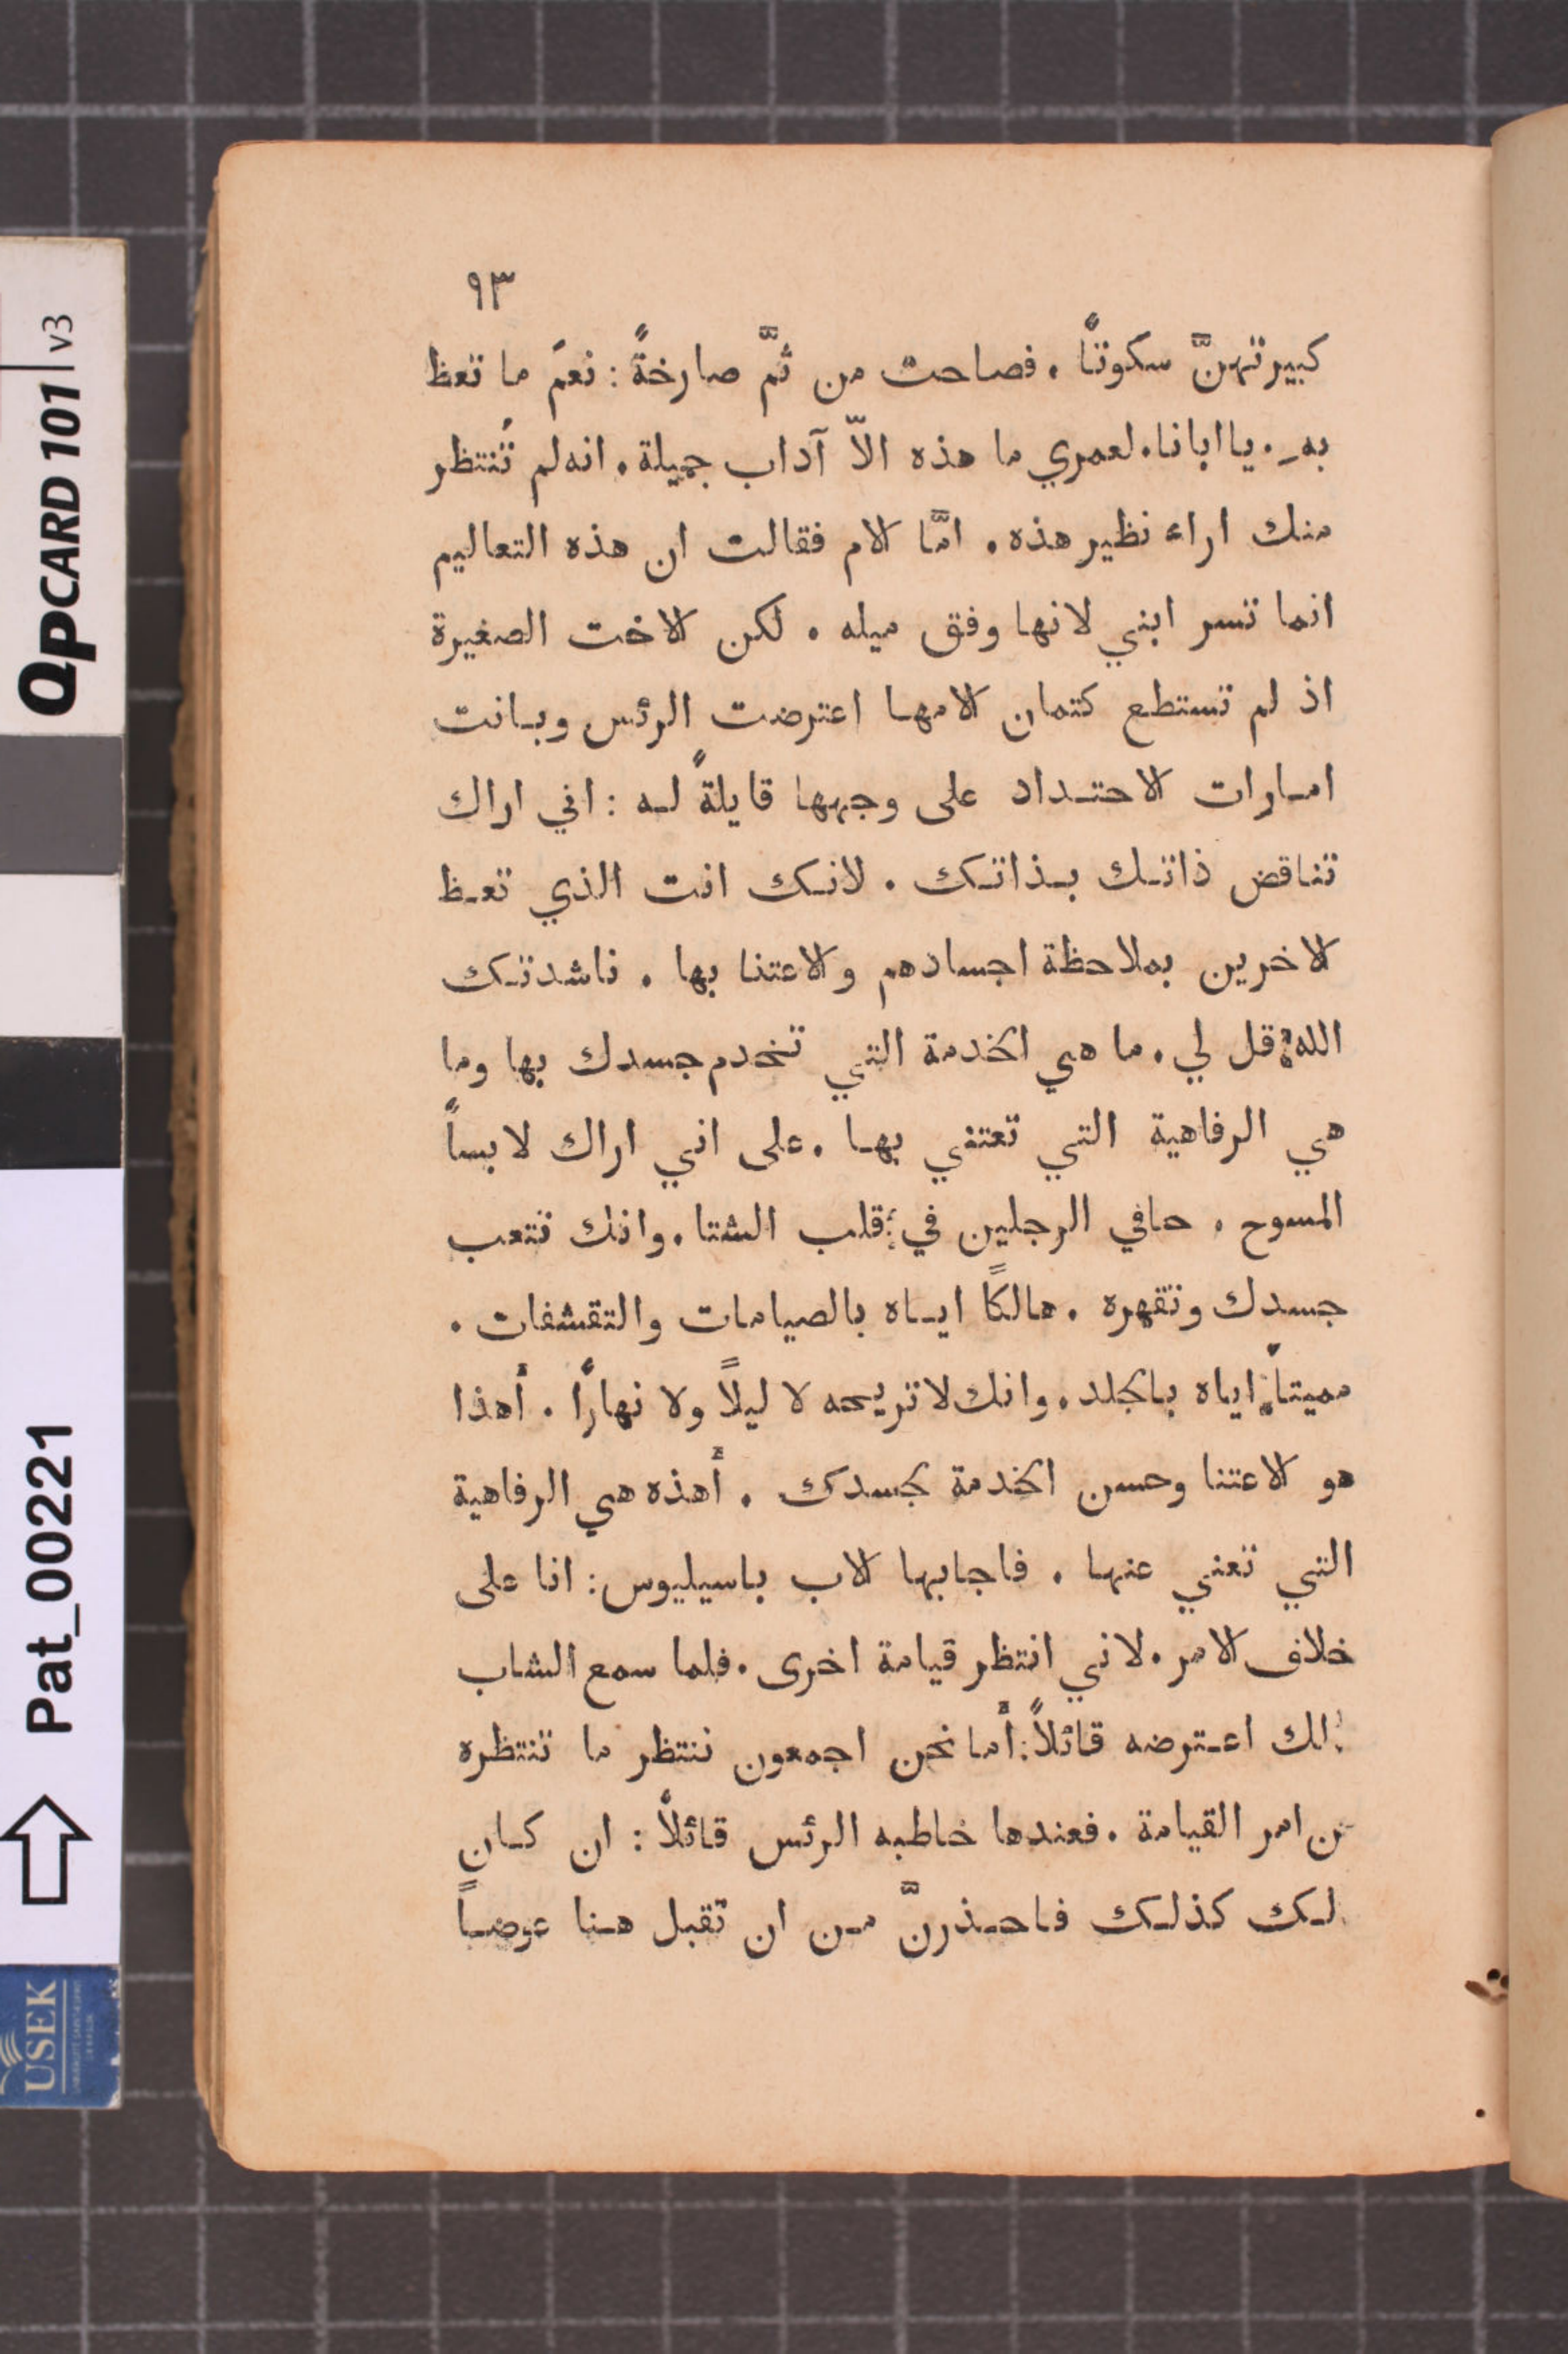 ٩٣
كبيرتهنَّ سكوتاً . فصاحت من ثمَّ صارخةً : نعمَ ما تعظ
به . يا ابانا . لعمري ما هذه الاّ آداب جميلة . انه لم تُنتظر
منك اراء نظير هذه . امَّا الام فقالت ان هذه التعاليم
انما تسر ابني لانها وفق ميله . لكن الاخت الصغيرة
اذ لم تستطع كتمان الامها اعترضت الرئس وبانت
امارات الاحتداد على وجهها قايلةً له : اني اراك
تناقض ذاتك بذاتك . لانك انت الذي تعظ
الاخرين بملاحظة اجسادهم والاعتنا بها . ناشدتك
الله قل لي . ما هي الخدمة التي تخدم جسدك بها وما
هي الرفاهية التي تعتني بها . على اني اراك لابساً
المسوح . حافي الرجلين في قلب الشتا . وانك تتعب
جسدك وتقهره . هالكًا اياه بالصيامات والتقشفات .
مميتاً اياه بالجلد . وانك لا تريحه لا ليلاً ولا نهارًا . أهذا
هو الاعتنا وحسن الخدمة لجسدك . أهذه هي الرفاهية
التي تعني عنها . فاجابها الاب باسيليوس : انا على
خلاف الامر . لاني انتظر قيامة اخرى . فلما سمع الشاب
ذلك اعترضه قائلاً : أما نحن اجمعون ننتظر ما تنتظره
من امر القيامة . فعندها خاطبه الرئس قائلاً : ان كان
لك كذلك فاحذرنَّ من ان تقبل هنا عوضاً
QPCARD 101 v3
Pat_00221
USEK